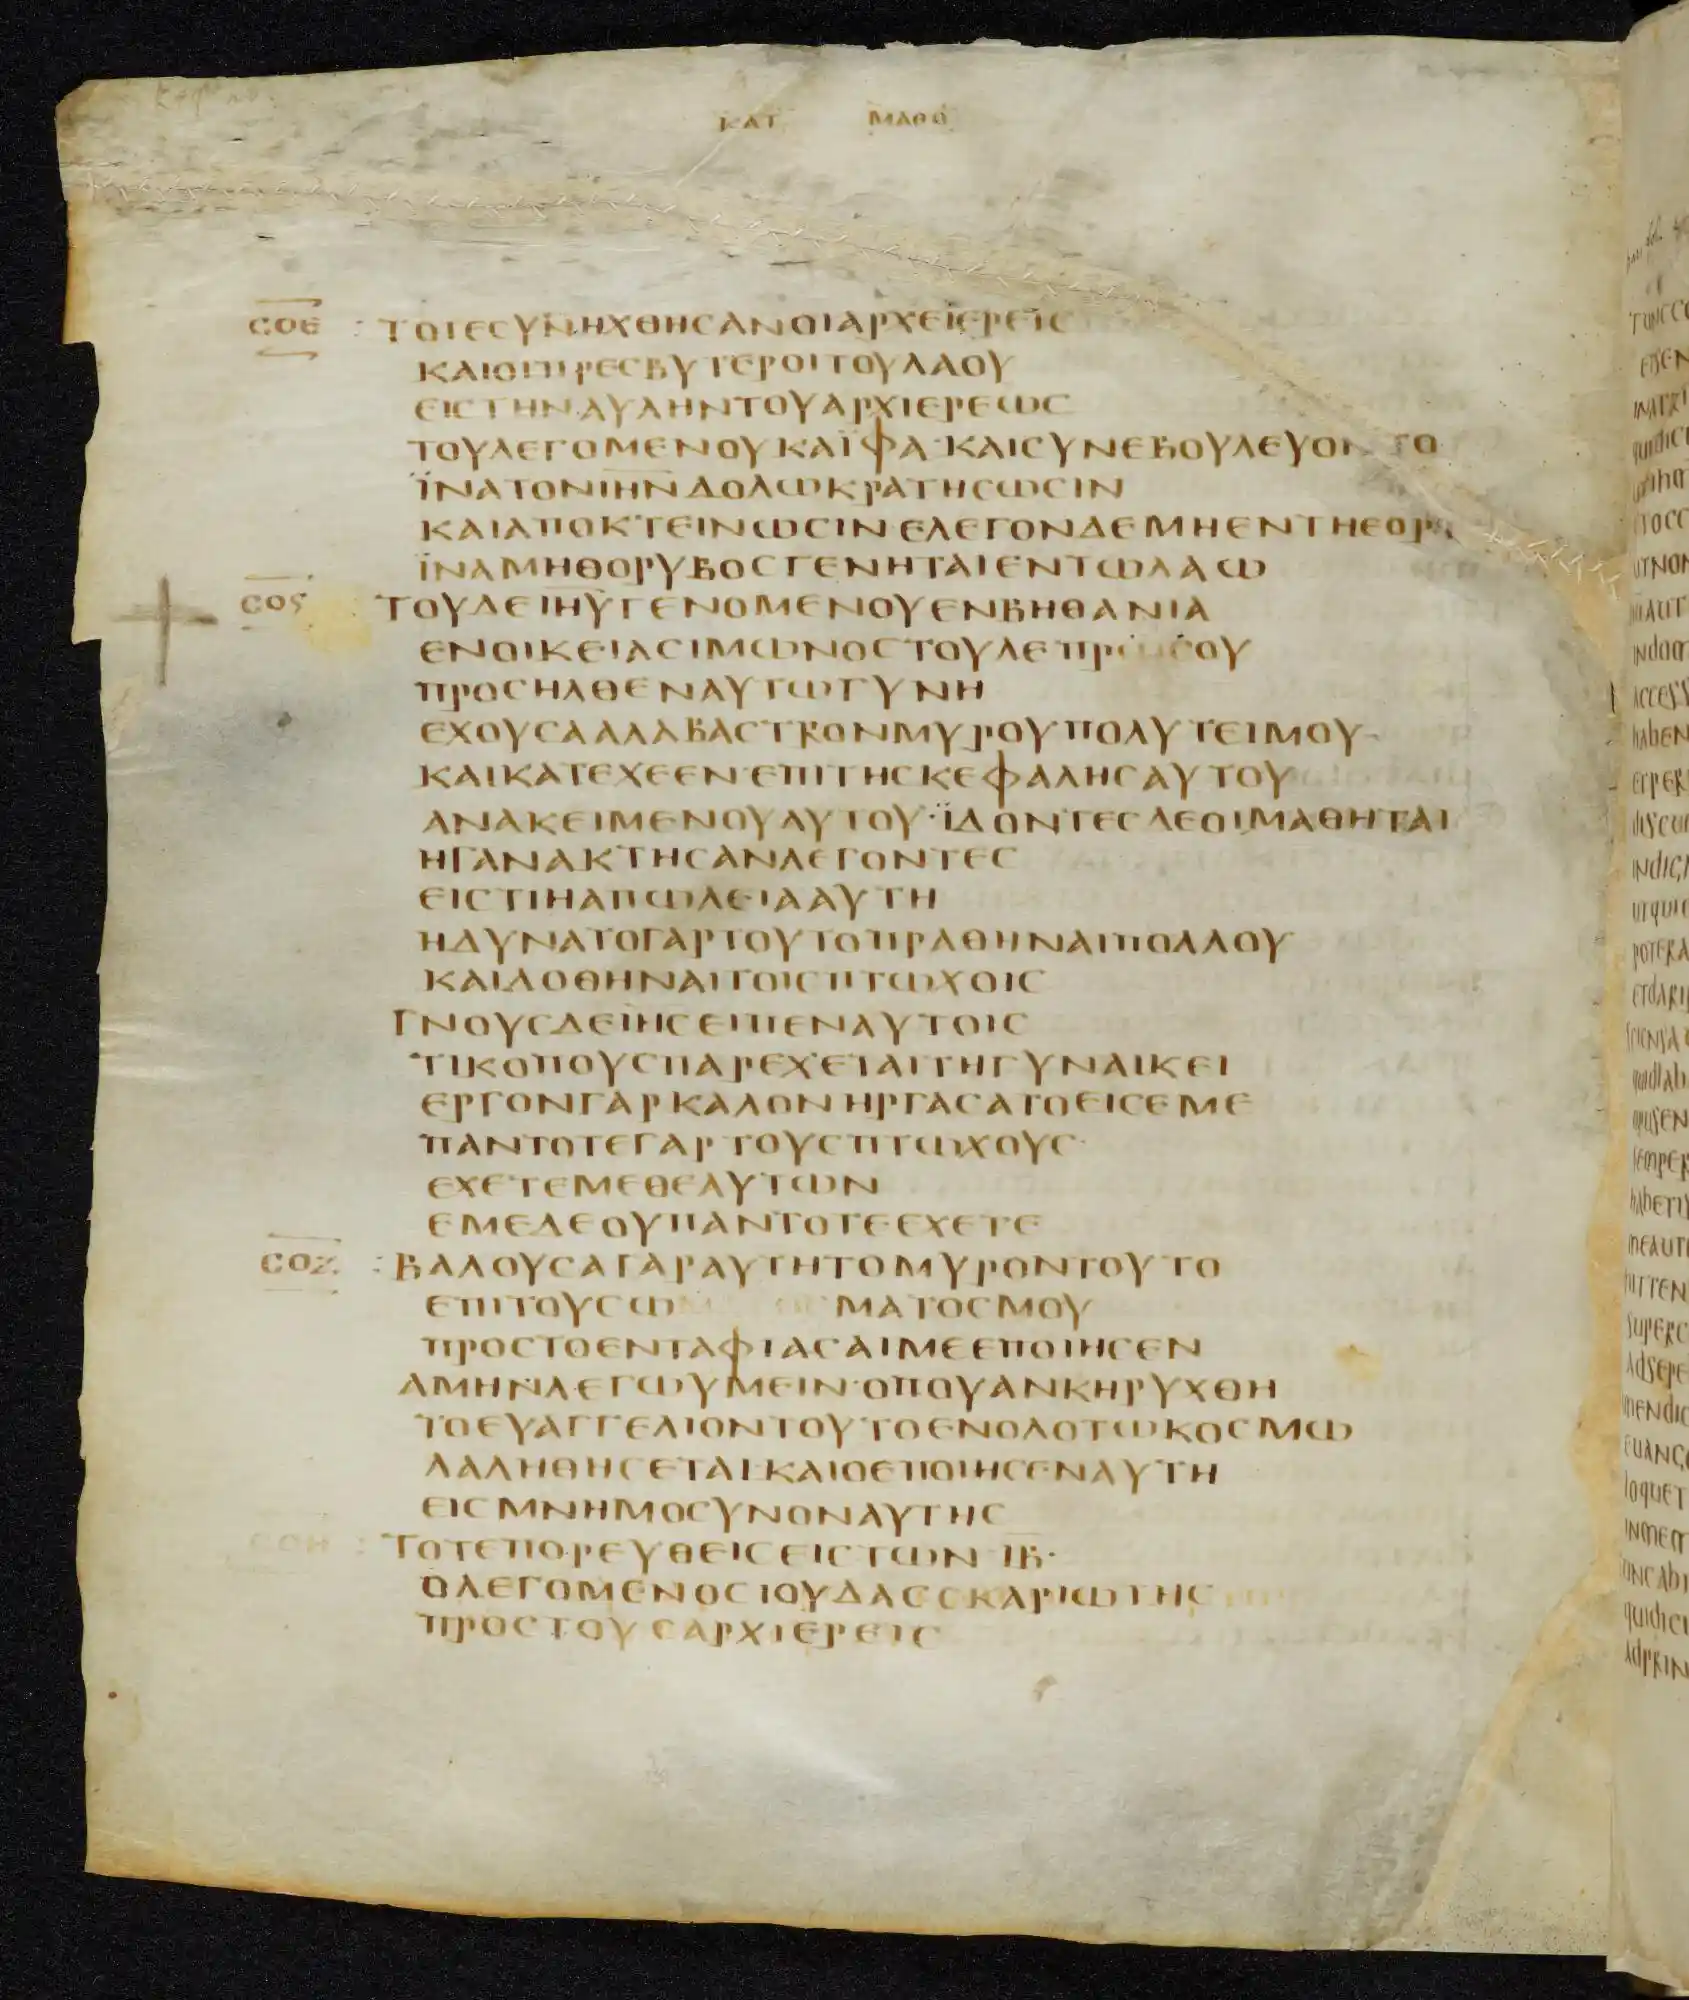 ΚΑΤ ΜΑΘΘ
ϹΟΕ : ΤΟΤΕϹΥΝΗΧΘΗϹΑΝΟΙΑΡΧΕΙΕΡΕΙϹ
ΚΑΙΟΙΠΡΕϹΒΥΤΕΡΟΙΤΟΥΛΑΟΥ
ΕΙϹΤΗΝΑΥΛΗΝΤΟΥΑΡΧΙΕΡΕΩϹ
ΤΟΥΛΕΓΟΜΕΝΟΥΚΑΪΦΑ·ΚΑΙϹΥΝΕΒΟΥΛΕΥΟΝΤΟ
ΪΝΑΤΟΝΙΗΝΔΟΛΩΚΡΑΤΗϹΩϹΙΝ
ΚΑΙΑΠΟΚΤΕΙΝΩϹΙΝ·ΕΛΕΓΟΝΔΕΜΗΕΝΤΗΕΟΡ
ΪΝΑΜΗΘΟΡΥΒΟϹΓΕΝΗΤΑΙΕΝΤΩΛΑΩ
ϹΟϚ ΤΟΥΔΕΙΗΥΓΕΝΟΜΕΝΟΥΕΝΒΗΘΑΝΙΑ
ΕΝΟΙΚΕΙΑϹΙΜΩΝΟϹΤΟΥΛΕΠΡΩϹΟΥ
ΠΡΟϹΗΛΘΕΝΑΥΤΩΓΥΝΗ
ΕΧΟΥϹΑΑΛΑΒΑϹΤΡΟΝΜΥΡΟΥΠΟΛΥΤΕΙΜΟΥ
ΚΑΙΚΑΤΕΧΕΕΝΕΠΙΤΗϹΚΕΦΑΛΗϹΑΥΤΟΥ
ΑΝΑΚΕΙΜΕΝΟΥΑΥΤΟΥ·ΪΔΟΝΤΕϹΔΕΟΙΜΑΘΗΤΑΙ
ΗΓΑΝΑΚΤΗϹΑΝΛΕΓΟΝΤΕϹ
ΕΙϹΤΙΗΑΠΩΛΕΙΑΑΥΤΗ
ΗΔΥΝΑΤΟΓΑΡΤΟΥΤΟΠΡΑΘΗΝΑΙΠΟΛΛΟΥ
ΚΑΙΔΟΘΗΝΑΙΤΟΙϹΠΤΩΧΟΙϹ
ΓΝΟΥϹΔΕΙΗϹΕΙΠΕΝΑΥΤΟΙϹ
ΤΙΚΟΠΟΥϹΠΑΡΕΧΕΤΑΙΤΗΓΥΝΑΙΚΕΙ
ΕΡΓΟΝΓΑΡΚΑΛΟΝΗΡΓΑϹΑΤΟΕΙϹΕΜΕ
ΠΑΝΤΟΤΕΓΑΡΤΟΥϹΠΤΩΧΟΥϹ
ΕΧΕΤΕΜΕΘΕΑΥΤΩΝ
ΕΜΕΔΕΟΥΠΑΝΤΟΤΕΕΧΕΤΕ
ϹΟΖ : ΒΑΛΟΥϹΑΓΑΡΑΥΤΗΤΟΜΥΡΟΝΤΟΥΤΟ
ΕΠΙΤΟΥϹΩ ΜΑΤΟϹΜΟΥ
ΠΡΟϹΤΟΕΝΤΑΦΙΑϹΑΙΜΕΕΠΟΙΗϹΕΝ
ΑΜΗΝΛΕΓΩΥΜΕΙΝ·ΟΠΟΥΑΝΚΗΡΥΧΘΗ
ΤΟΕΥΑΓΓΕΛΙΟΝΤΟΥΤΟΕΝΟΛΟΤΩΚΟϹΜΩ
ΛΑΛΗΘΗϹΕΤΑΙ·ΚΑΙΟΕΠΟΙΗϹΕΝΑΥΤΗ
ΕΙϹΜΝΗΜΟϹΥΝΟΝΑΥΤΗϹ
ϹΟΗ : ΤΟΤΕΠΟΡΕΥΘΕΙϹΕΙϹΤΩΝ·ΙΒ·
ΟΛΕΓΟΜΕΝΟϹΙΟΥΔΑϹϹΚΑΡΙΩΤΗϹ
ΠΡΟϹΤΟΥϹΑΡΧΙΕΡΕΙϹ